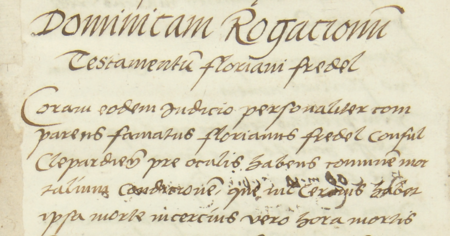 Dominicam Rogacionū
Testamentū floriani fredel
Coram eodem Judicio personaliter com
parens famatus florianus fredel Consul
Clepardieñ pre oculis habens comunem̄ mor
talium Condicionē que nil Cercius habet
ipsa morte incercius vero hora mortis